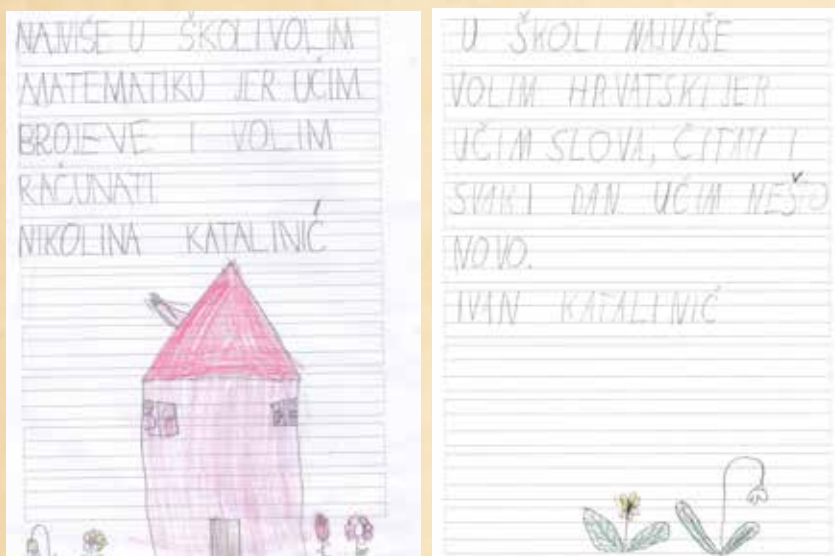 NAJVIŠE U ŠKOLI VOLIM
MATEMATIKU JER UČIM
BROJEVE I VOLIM
RAČUNATI.
NIKOLINA KATALINIĆ
U ŠKOLI NAJVIŠE
VOLIM HRVATSKI JER
UČIM SLOVA, ČITATI I
SVAKI DAN UČIM NEŠTO
NOVO.
IVAN KATALINIĆ